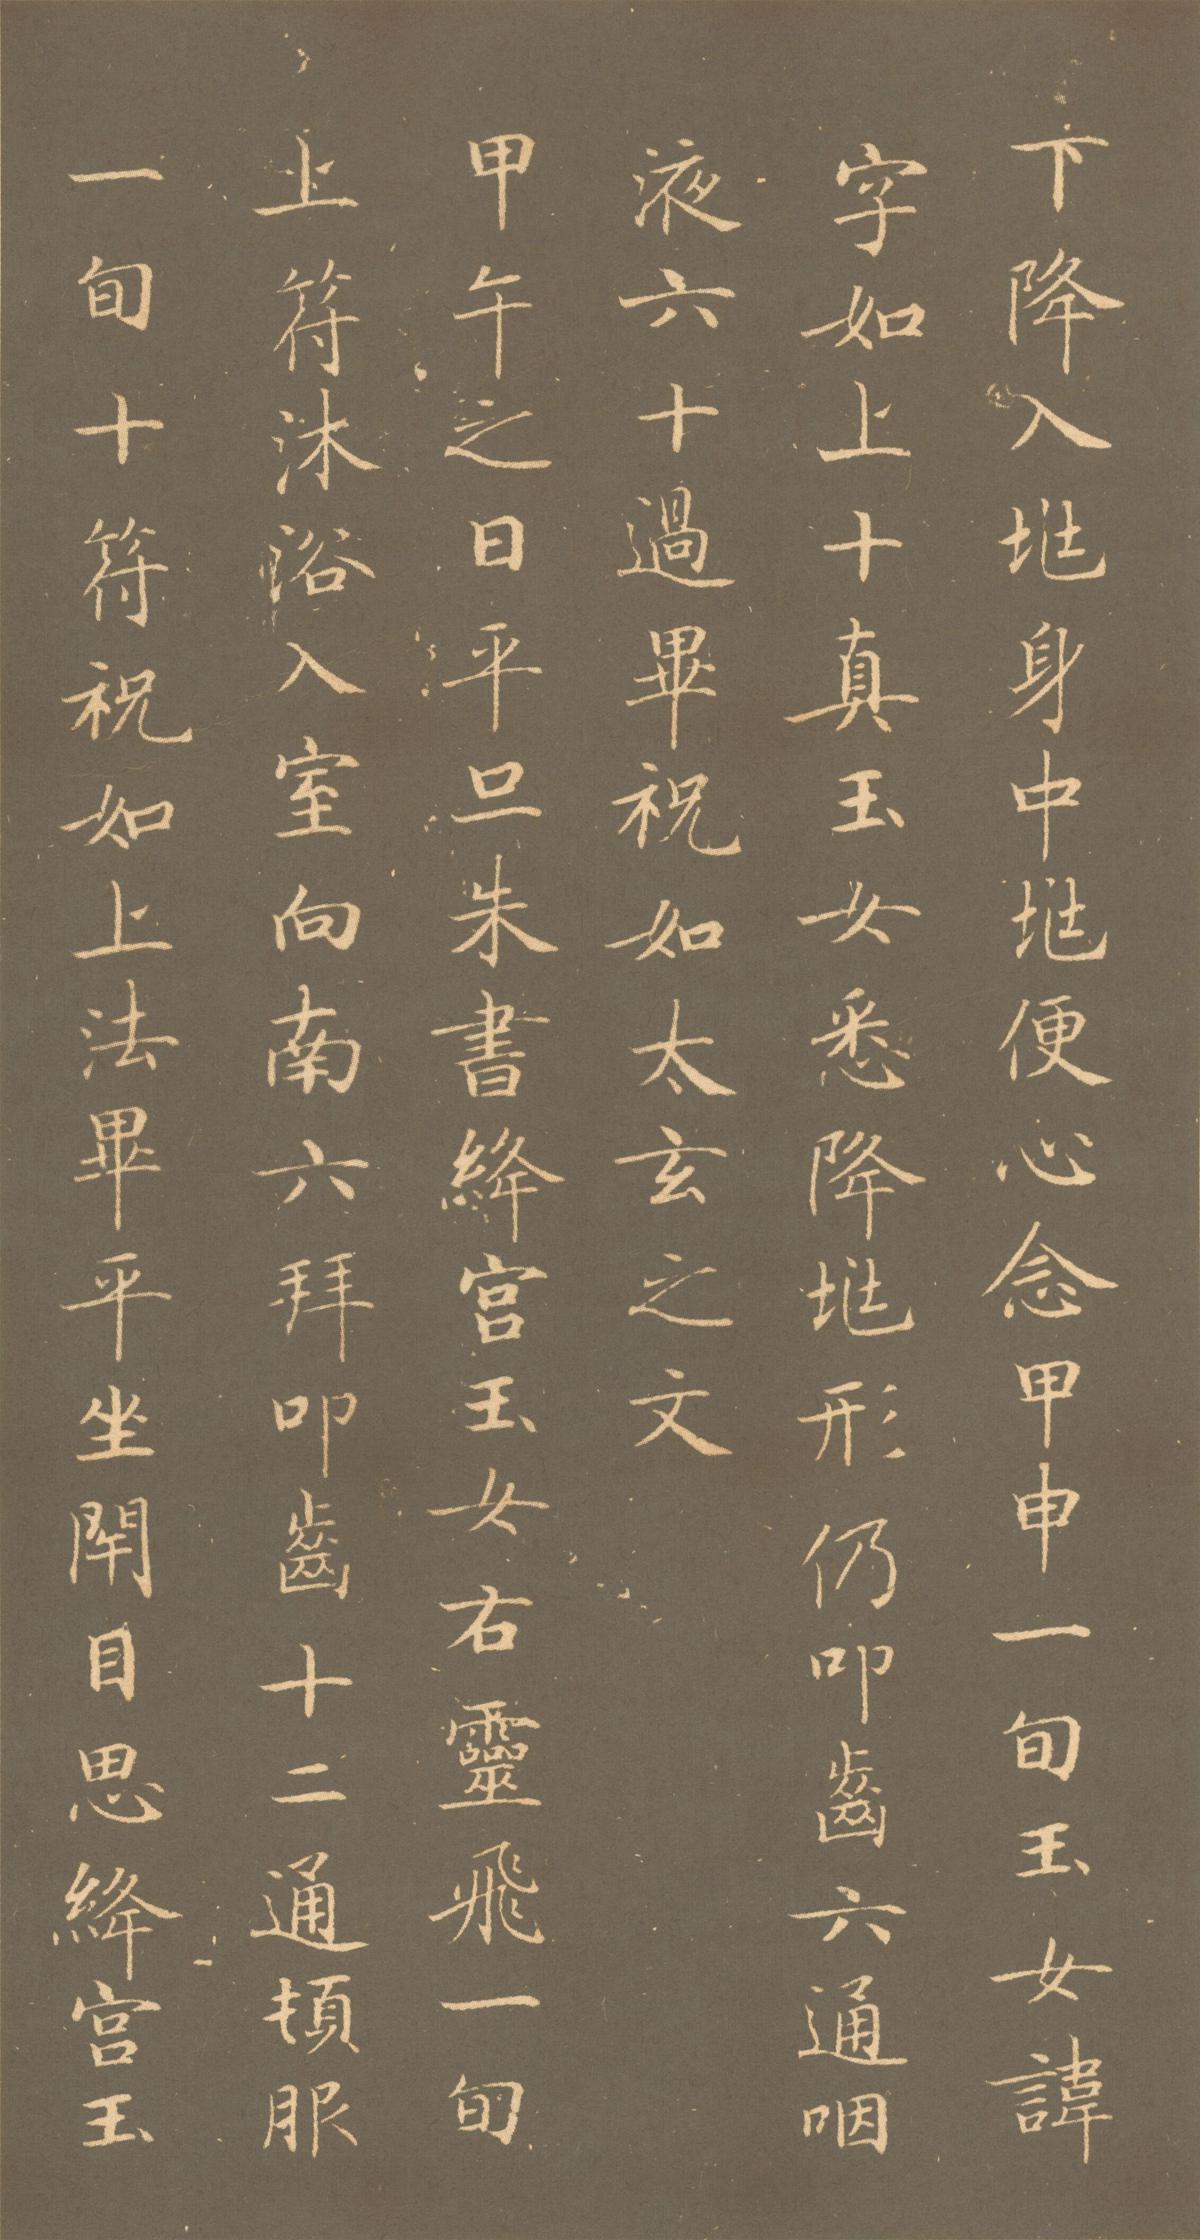 下降入地身中地便心念甲申一旬玉女諱
字如上十真玉女悉降地形仍叩齒六通咽
液六十過畢祝如太玄之文
甲午之日平旦朱書絳宮玉女右靈飛一旬
上符沐浴入室向南六拜叩齒十二通頓服
一旬十符祝如上法畢平坐閇目思絳宮玉